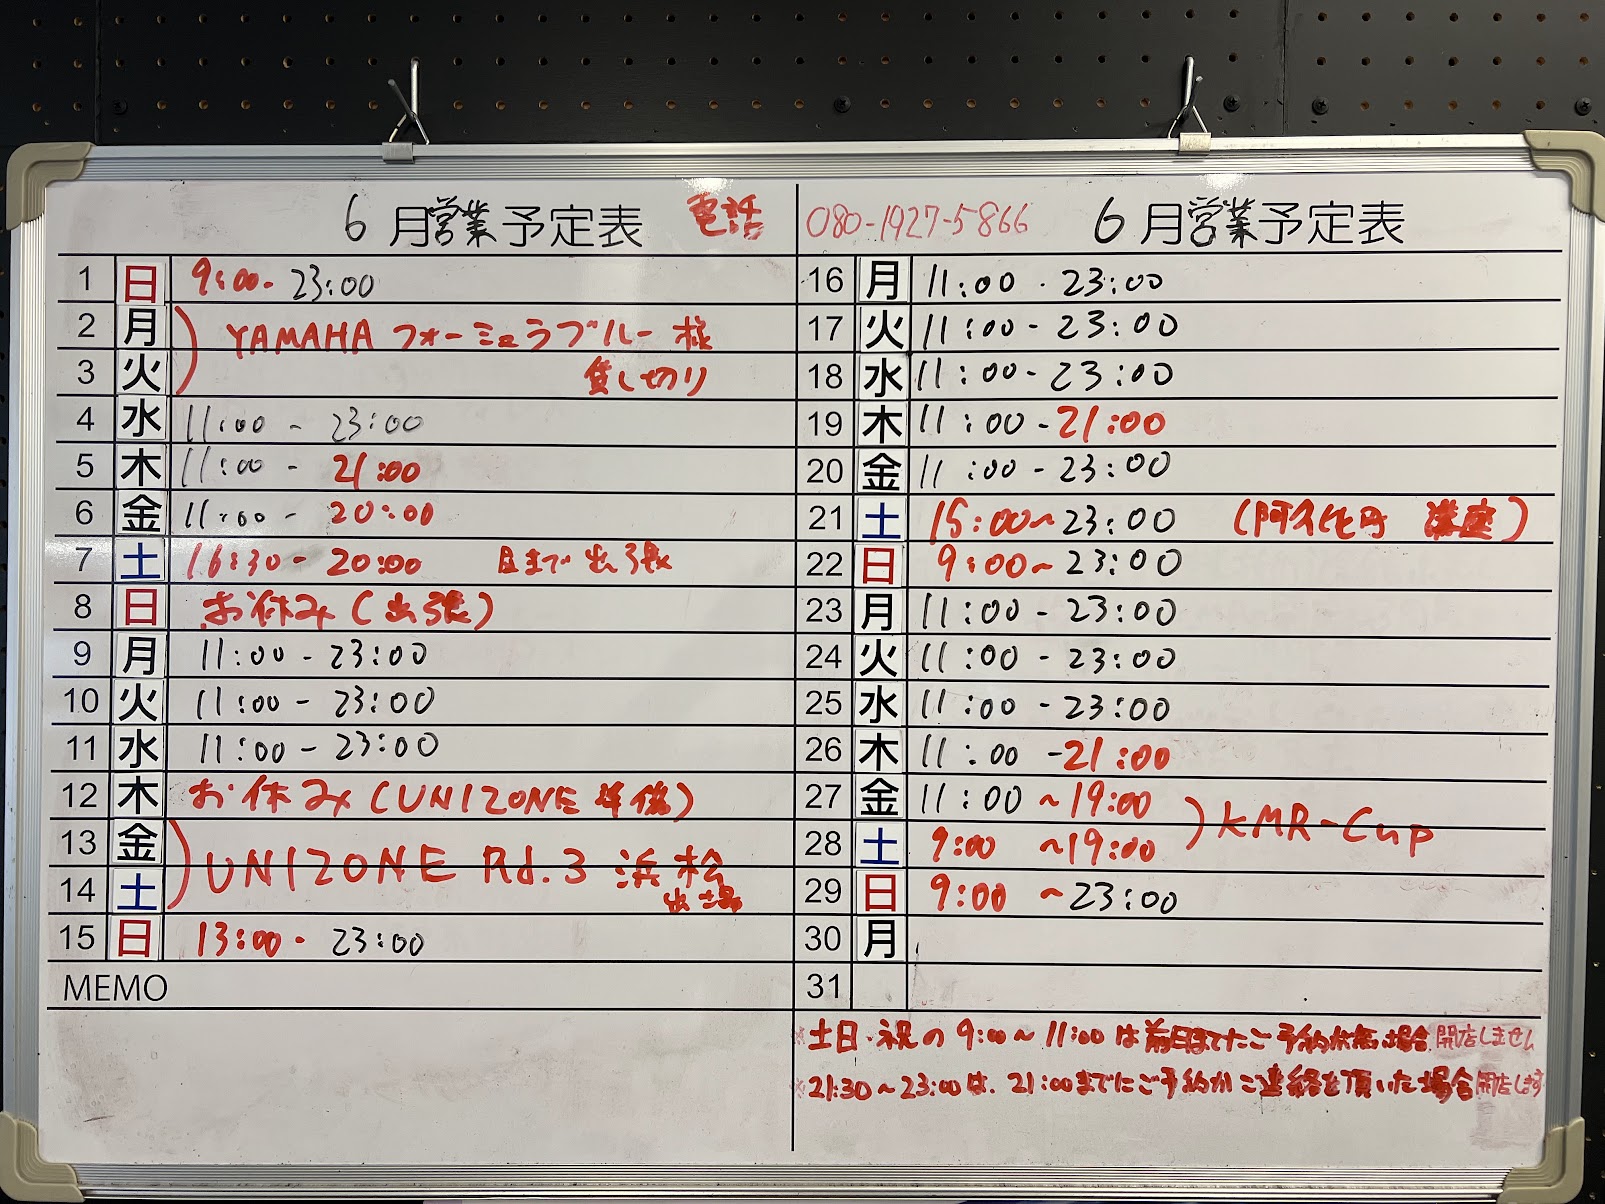 6月営業予定表 電話 080-1927-5866 6月営業予定表
1 日 9:00- 23:00
2 月 YAMAHA フォーミュラブルー様
3 火 貸し切り
4 水 11:00 - 23:00
5 木 11:00 - 21:00
6 金 11:00 - 20:00
7 土 16:30 - 20:00 まで 出張
8 日 お休み(出張)
9 月 11:00 - 23:00
10 火 11:00 - 23:00
11 水 11:00 - 23:00
12 木 お休み(UNIZONE 準備)
13 金 UNIZONE Rd.3 浜松
14 土 出場
15 日 13:00 - 23:00
MEMO
16 月 11:00 - 23:00
17 火 11:00 - 23:00
18 水 11:00 - 23:00
19 木 11:00 - 21:00
20 金 11:00 - 23:00
21 土 15:00~23:00 (阿久比町 講座)
22 日 9:00~23:00
23 月 11:00 - 23:00
24 火 11:00 - 23:00
25 水 11:00 - 23:00
26 木 11:00 - 21:00
27 金 11:00 ~19:00 KMR-Cup
28 土 9:00 ~19:00
29 日 9:00 ~23:00
30 月
31
※土日・祝の9:00~11:00は前日までにご予約が無い場合開店しません
※21:30~23:00は、21:00までにご予約かご連絡を頂いた場合開店します